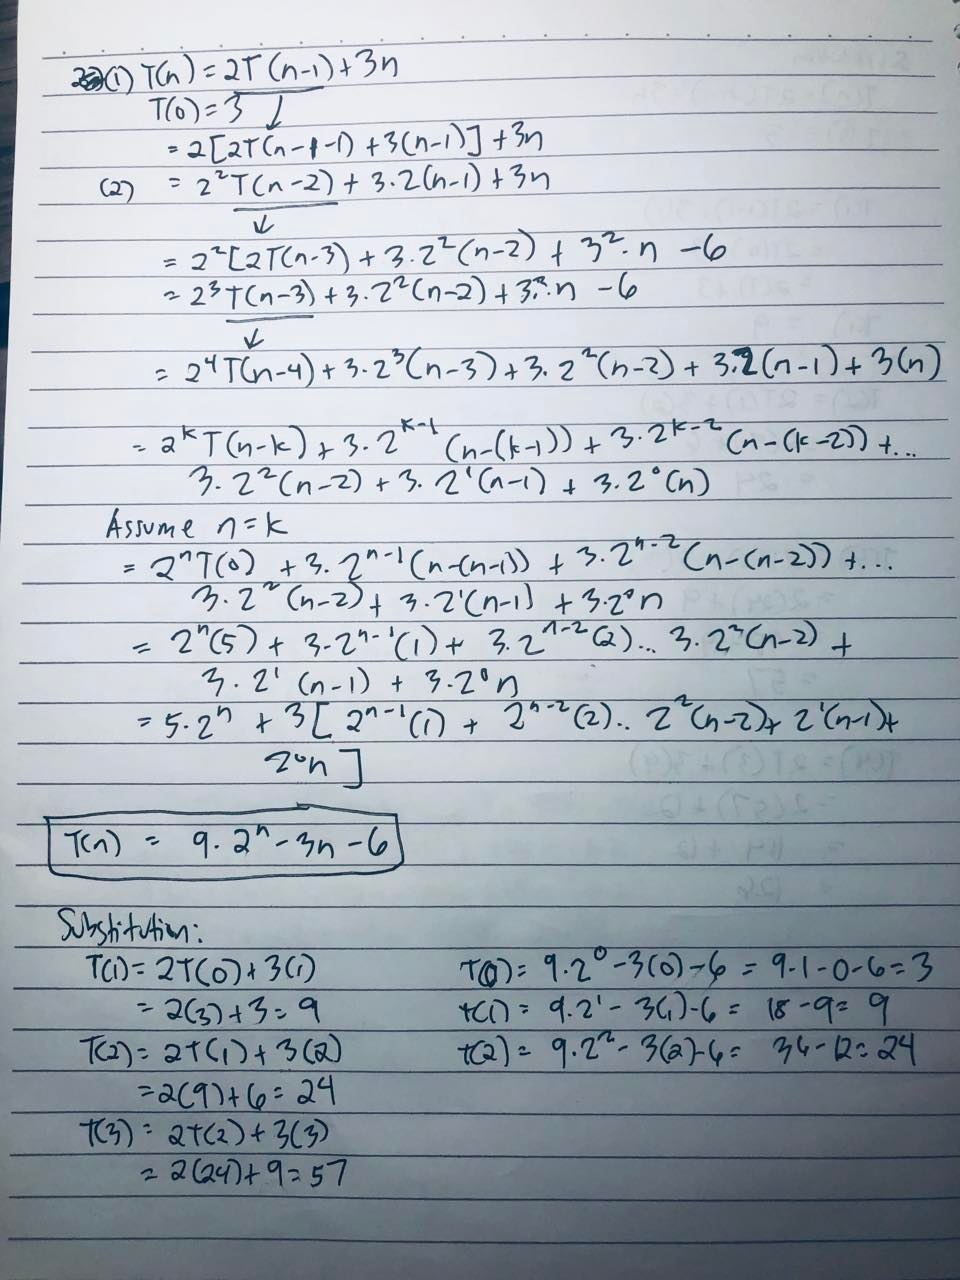 (1) T(n) = 2T(n-1) + 3n
T(0) = 3 ↓
= 2[2T(n-1-1) + 3(n-1)] + 3n
(2) = 2²T(n-2) + 3·2(n-1) + 3n
↓
= 2²[2T(n-3) + 3·2²(n-2) + 3²·n - 6
= 2³T(n-3) + 3·2²(n-2) + 3²·n - 6
↓
= 2⁴T(n-4) + 3·2³(n-3) + 3·2²(n-2) + 3·2(n-1) + 3(n)
= 2ᵏT(n-k) + 3·2ᵏ⁻¹(n-(k-1)) + 3·2ᵏ⁻²(n-(k-2)) + ...
3·2²(n-2) + 3·2¹(n-1) + 3·2⁰(n)
Assume n = k
= 2ⁿT(0) + 3·2ⁿ⁻¹(n-(n-1)) + 3·2ⁿ⁻²(n-(n-2)) + ...
3·2²(n-2) + 3·2¹(n-1) + 3·2⁰n
= 2ⁿ(5) + 3·2ⁿ⁻¹(1) + 3·2ⁿ⁻²(2) ... 3·2²(n-2) +
3·2¹(n-1) + 3·2⁰n
= 5·2ⁿ + 3[2ⁿ⁻¹(1) + 2ⁿ⁻²(2).. 2²(n-2) + 2¹(n-1) +
2⁰n]
T(n) = 9·2ⁿ - 3n - 6
Substitution:
T(1) = 2T(0) + 3(1) T(0) = 9·2⁰ - 3(0) - 6 = 9·1 - 0 - 6 = 3
= 2(3) + 3 = 9 t(1) = 9·2¹ - 3(1) - 6 = 18 - 9 = 9
T(2) = 2T(1) + 3(2) t(2) = 9·2² - 3(2) - 6 = 36 - 12 = 24
= 2(9) + 6 = 24
T(3) = 2T(2) + 3(3)
= 2(24) + 9 = 57